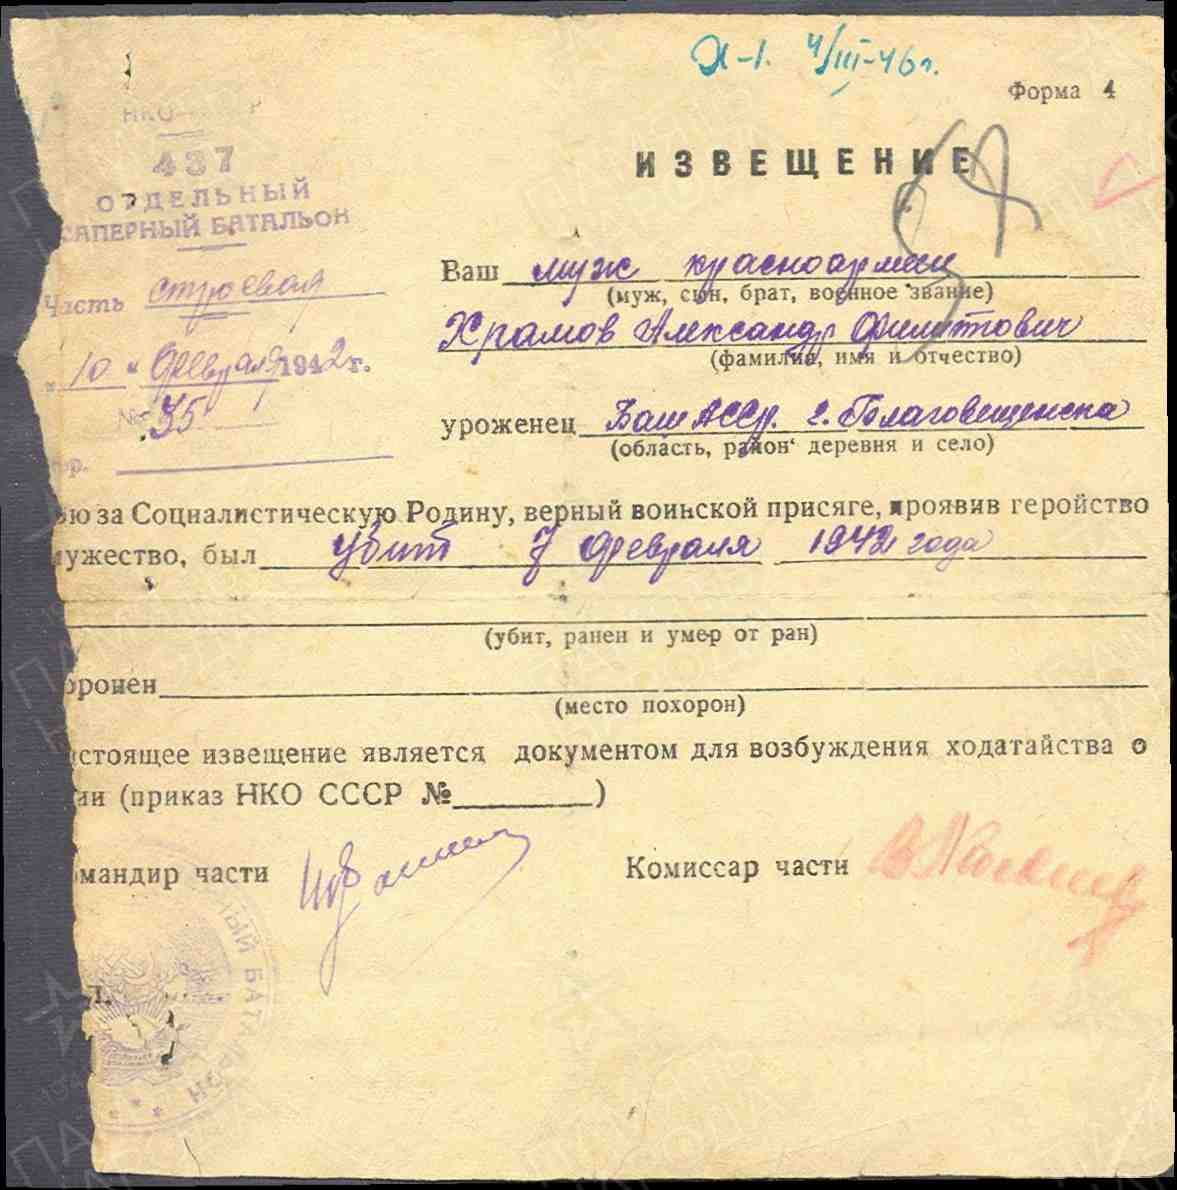 Х-1. 4/III-46г.
Форма 4
НКО
437
ОТДЕЛЬНЫЙ
САПЕРНЫЙ БАТАЛЬОН
ИЗВЕЩЕНИЕ
Часть строевая
„ 10 " Февраля 1942 г.
№ 35
ор.
Ваш муж красноармеец
(муж, сын, брат, военное звание)
Храмов Александр Филиппович
(фамилия, имя и отчество)
уроженец БашАССР. г. Благовещенска
(область, район деревня и село)
ою за Социалистическую Родину, верный воинской присяге, проявив геройство
мужество, был убит 7 Февраля 1942 года
(убит, ранен и умер от ран)
оронен
(место похорон)
стоящее извещение является документом для возбуждения ходатайства о
ии (приказ НКО СССР № )
мандир части
Комиссар части
НЫЙ БАТАЛЬОН